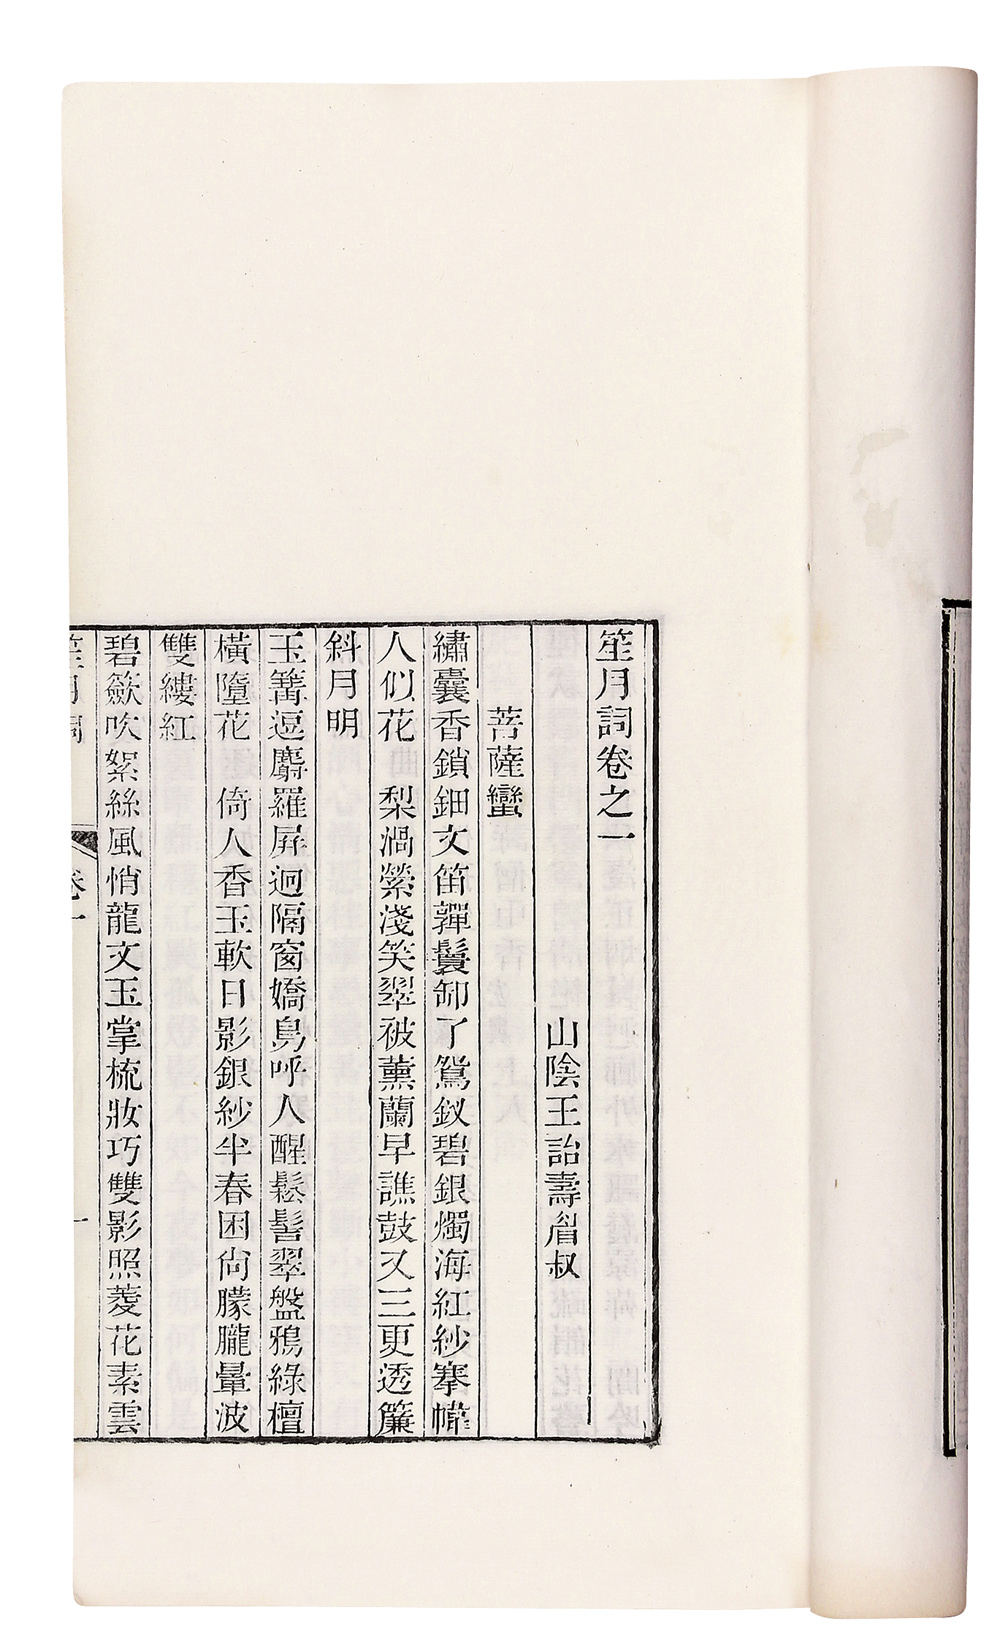 笙月詞卷之一
山陰王詒壽眉叔
菩薩蠻
繡囊香鎖鈿文笛嚲鬟卸了鴛釵碧銀燭海紅紗搴幃
人似花　梨渦縈淺笑翠被薰蘭早譙鼓又三更透簾
斜月明
玉篝逗麝羅屏迴隔窗嬌鳥呼人醒鬆髻翠盤鴉綠檀
橫墮花　倚人香玉軟日影銀紗半春困尙朦朧暈波
雙縷紅
碧簌吹絮絲風悄龍文玉掌梳妝巧雙影照菱花素雲
笙月詞　卷一　一